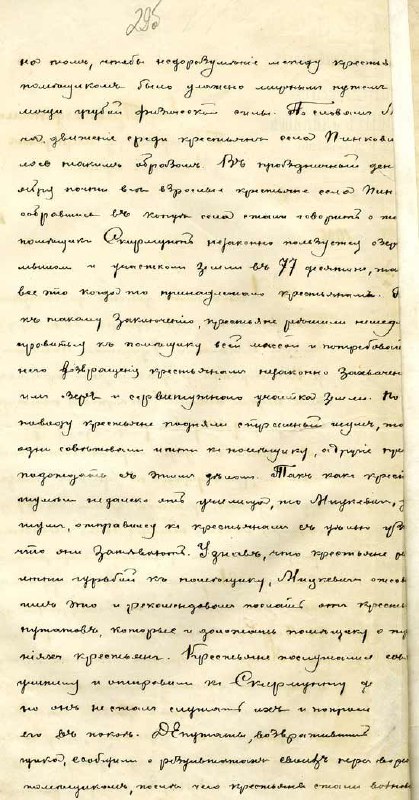 295
на томъ, чтобы недоразумѣніе между крестья
помѣщикомъ было улажено мирнымъ путемъ
мощи грубой физической силы. По словамъ
на, движеніе среди крестьянъ села Пинкови
лось такимъ образомъ. Въ праздничный ден
ября почти всѣ взрослые крестьяне села Пин
собравшись въ концѣ села стали говорить о то
помѣщикъ Скирмунтъ незаконно пользуется озер
и участкомъ земли въ 77 десятинъ, та
все это когда то принадлежало крестьянамъ.
къ такому заключенію, крестьяне рѣшили немедл
правиться къ помѣщику всей массой и потребовать
него возвращенія крестьянамъ незаконно захвачен
ими озеръ и сервитутнаго участка земли. По
поводу крестьяне подняли страшный шумъ, то
одни совѣтовали идти къ помѣщику, а другіе пр
подождать съ этимъ дѣломъ. Такъ какъ крест
шумѣли недалеко отъ училища, то Мицкевичъ,
шумъ, отправился къ крестьянамъ съ цѣлью уз
что они затѣваютъ. Узнавъ, что крестьяне
идти гурьбой къ помѣщику, Мицкевичъ отсовѣ
имъ это и рекомендовалъ послать отъ крестьян
путатовъ, которые и доложатъ помѣщику о тре
ніяхъ крестьянъ. Крестьяне послушались сов
учителя и отправили къ Скирмунту
но онъ не сталъ слушать ихъ и попросилъ
его въ покоѣ. Депутаты, возвративши
щика, сообщили о результатахъ своихъ переговоро
помѣщикомъ, послѣ чего крестьяне стали